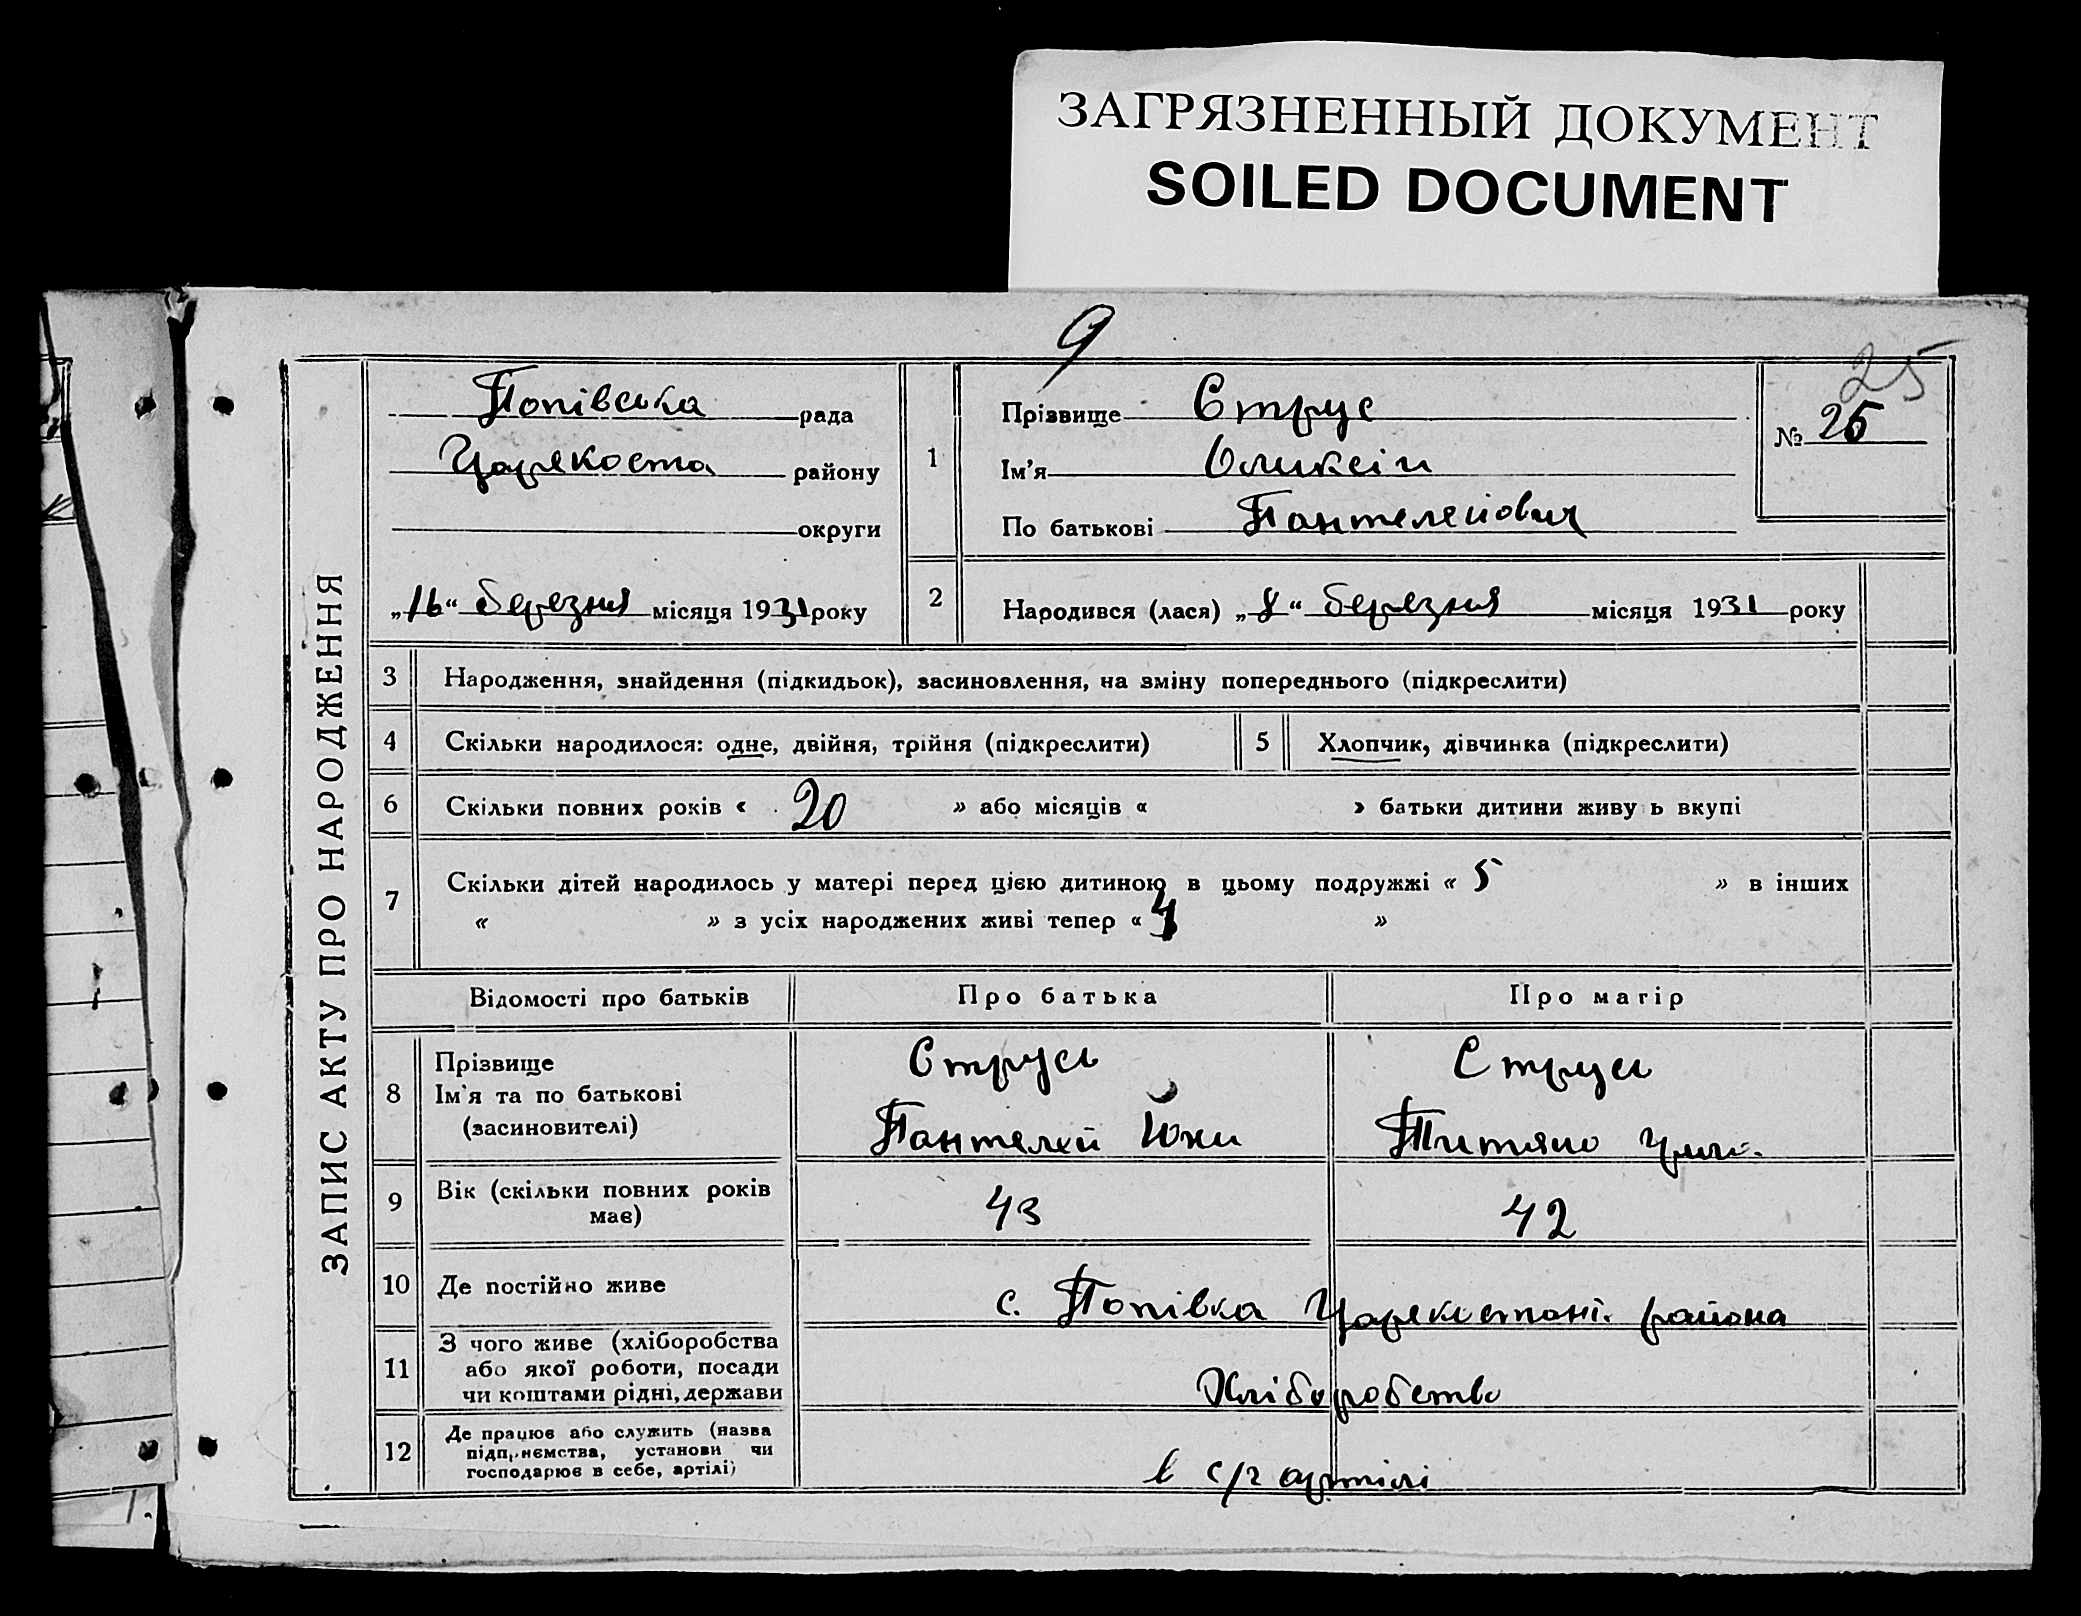 ЗАГРЯЗНЕННЫЙ ДОКУМЕНТ
SOILED DOCUMENT
9
25
ЗАПИС АКТУ ПРО НАРОДЖЕННЯ
Попівська рада
району
округи
„16“ березня місяця 1931 року
1
Прізвище Струс
Ім’я Оликсій
По батькові Пантелейович
№ 25
2 Народився (лася) „8“ березня місяця 1931 року
3 Народження, знайдення (підкидьок), засиновлення, на зміну попереднього (підкреслити)
4 Скільки народилося: одне, двійня, трійня (підкреслити) 5 Хлопчик, дівчинка (підкреслити)
6 Скільки повних років « 20 » або місяців « » батьки дитини живу ь вкупі
7 Скільки дітей народилось у матері перед цією дитиною в цьому подружжі « 5 » в інших
« » з усіх народжених живі тепер « 4 »
Відомості про батьків Про батька Про матір
8 Прізвище Струсь Струсь
Ім'я та по батькові
(засиновителі) Пантелей
9 Вік (скільки повних років має) 43 42
10 Де постійно живе с. Попівка района
11 З чого живе (хліборобства
або якої роботи, посади
чи коштами рідні, держави Хліборобство
12 Де працює або служить (назва
підприємства, установи чи
господарює в себе, артілі) в с/г артілі